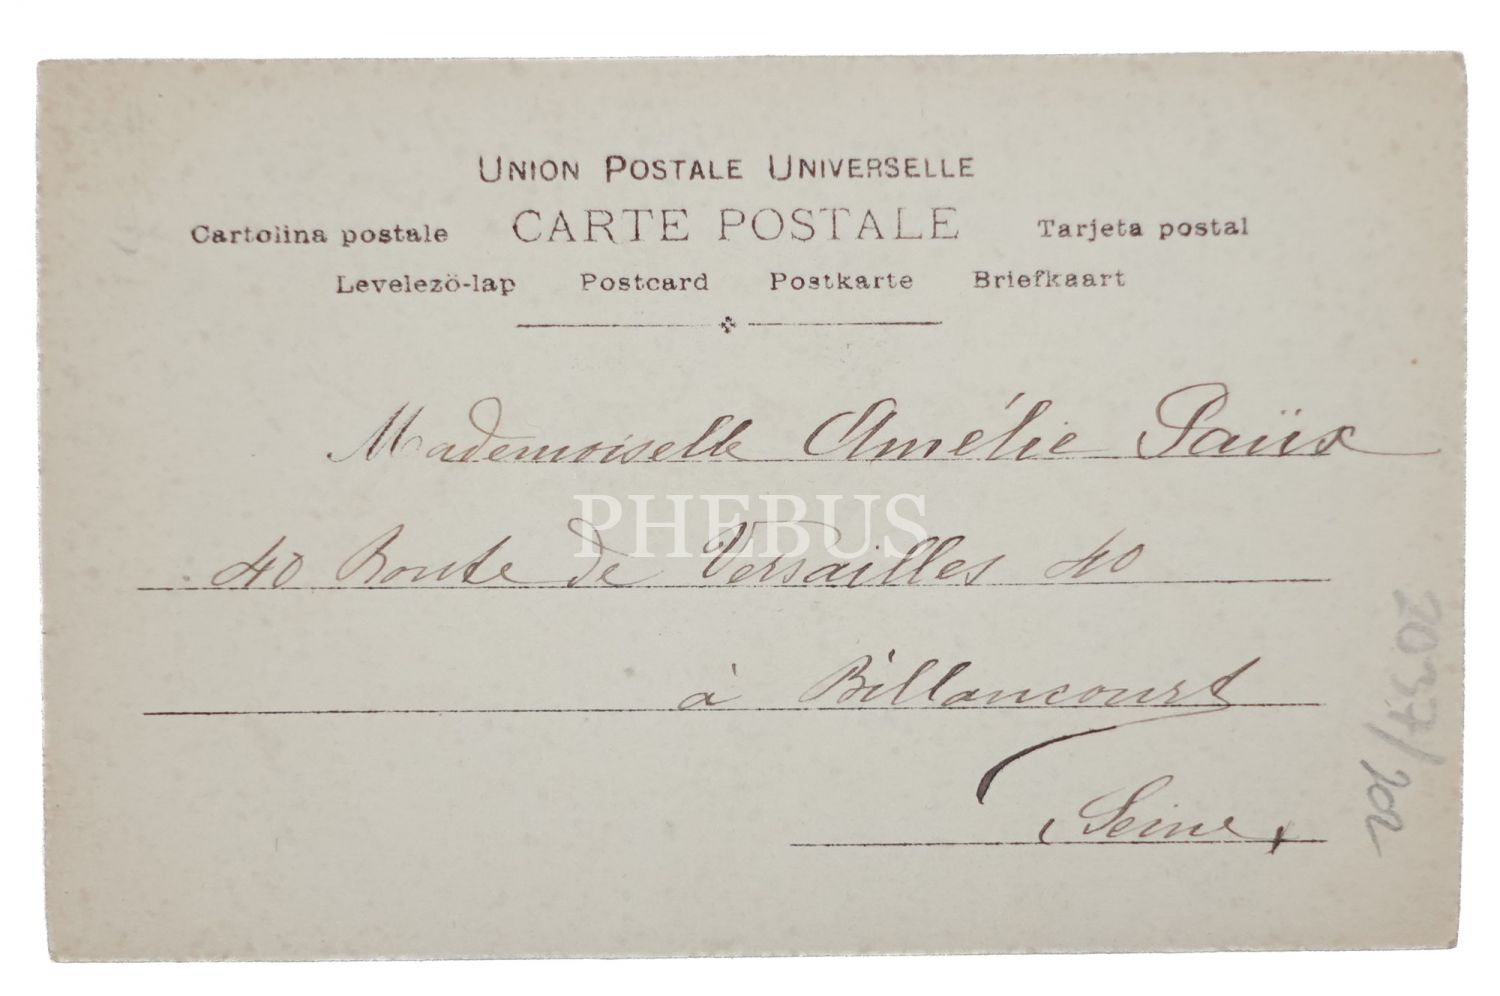 UNION POSTALE UNIVERSELLE
Cartolina postale CARTE POSTALE Tarjeta postal
Levelezö-lap Postcard Postkarte Briefkaart
Mademoiselle Amélie Paüx
PHEBUS
40 Route de Versailles 40
à Billancourt
(Seine)